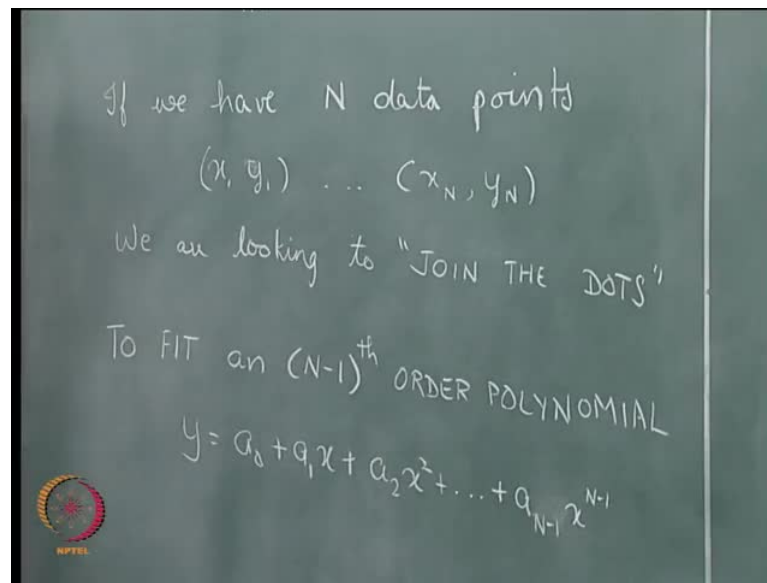 If we have N data points
(x, y₁) ... (x_N, y_N)
We are looking to "JOIN THE DOTS"
TO FIT an (N-1)^th ORDER POLYNOMIAL
y = a₀ + a₁x + a₂x² + ... + a_{N-1} x^{N-1}
NPTEL